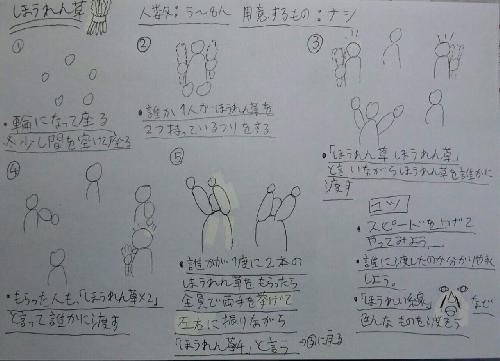 ほうれん草
人数：5〜8人 用意するもの：ナシ
①
・輪になって座る
※少し間を空けて座る
②
・誰か1人がほうれん草を
2つ持っているフリをする
③
・「ほうれん草 ほうれん草」
と言いながらほうれん草を誰かに
渡す
④
・もらった人も、「ほうれん草×2」
と言って誰かに渡す
⑤
・誰かが1度に2本の
ほうれん草をもらったら
全員で両手を挙げて
左右に振りながら
「ほうれん草4」と言う →③に戻る
コツ
・スピードを上げて
やってみよう
・誰に渡したのか分かりやすく
しよう。
・「ほうれい線」など
色んなものを渡そう